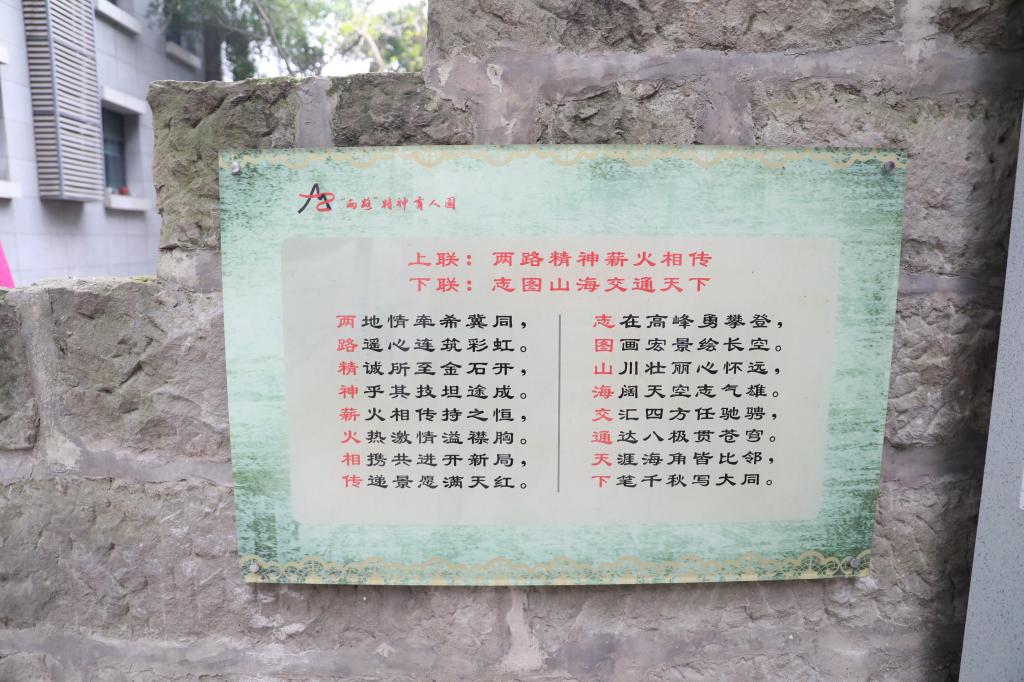 "两路"精神育人园
上联：两路精神薪火相传
下联：志图山海交通天下
两地情牵希冀同，
路遥心连筑彩虹。
精诚所至金石开，
神乎其技坦途成。
薪火相传持之恒，
火热激情溢襟胸。
相携共进开新局，
传递景愿满天红。
志在高峰勇攀登，
图画宏景绘长空。
山川壮丽心怀远，
海阔天空志气雄。
交汇四方任驰骋，
通达八极贯苍穹。
天涯海角皆比邻，
下笔千秋写大同。